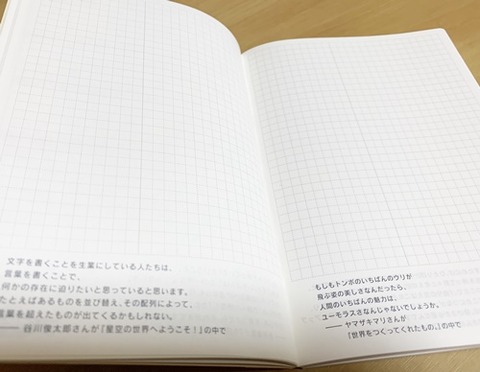 文字を書くことを生業にしている人たちは、
言葉を書くことで、
何かの存在に迫りたいと思っていると思います。
たとえばあるものを並び替え、その配列によって、
言葉を超えたものが出てくるかもしれない。
── 谷川俊太郎さんが『星空の世界へようこそ!』の中で
もしもトンボのいちばんのウリが
飛ぶ姿の美しさなんだったら、
人間のいちばんの魅力は、
ユーモラスさなんじゃないでしょうか。
── ヤマザキマリさんが
『世界をつくってくれたもの。』の中で